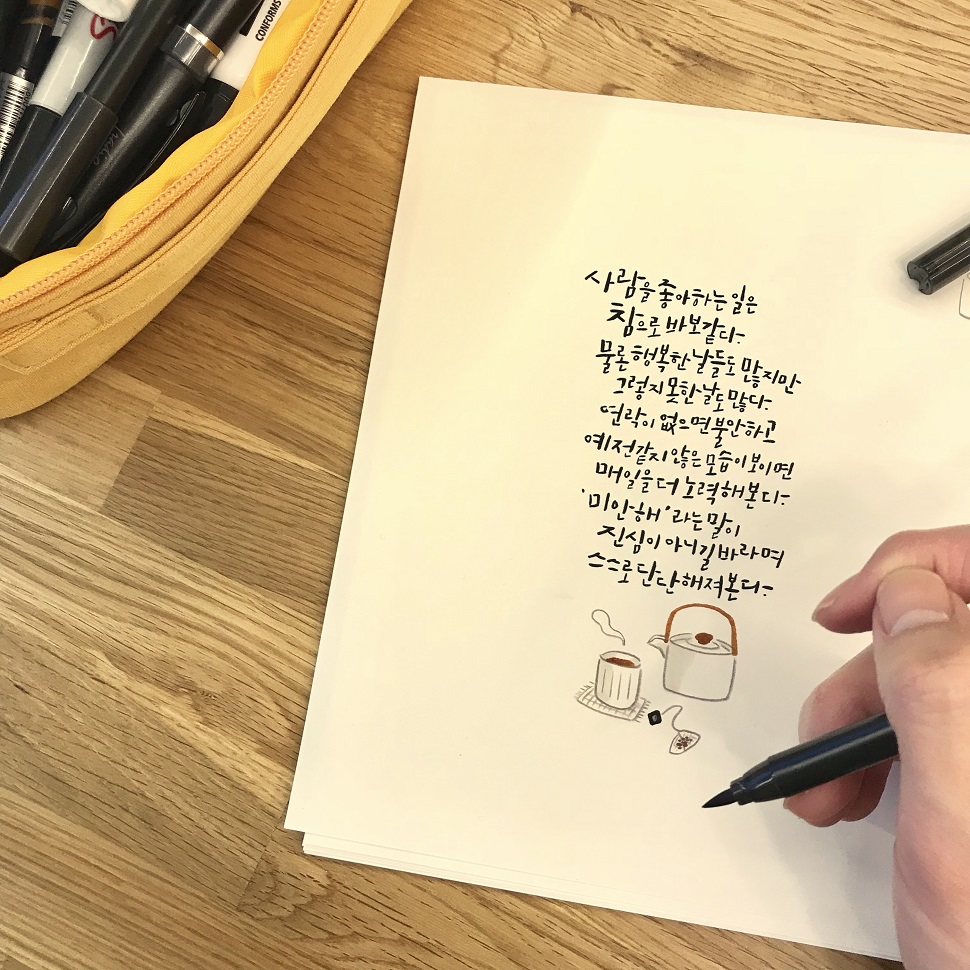 CONFORMS
사람을 좋아하는 일은
참으로 바보같다.
물론 행복한 날들도 많지만
그렇지 못한 날도 많다.
연락이 없으면 불안하고
예전같지 않은 모습이 보이면
매일을 더 노력해본다.
'미안해'라는 말이
진심이 아니길 바라며
스스로 단단해져본다.